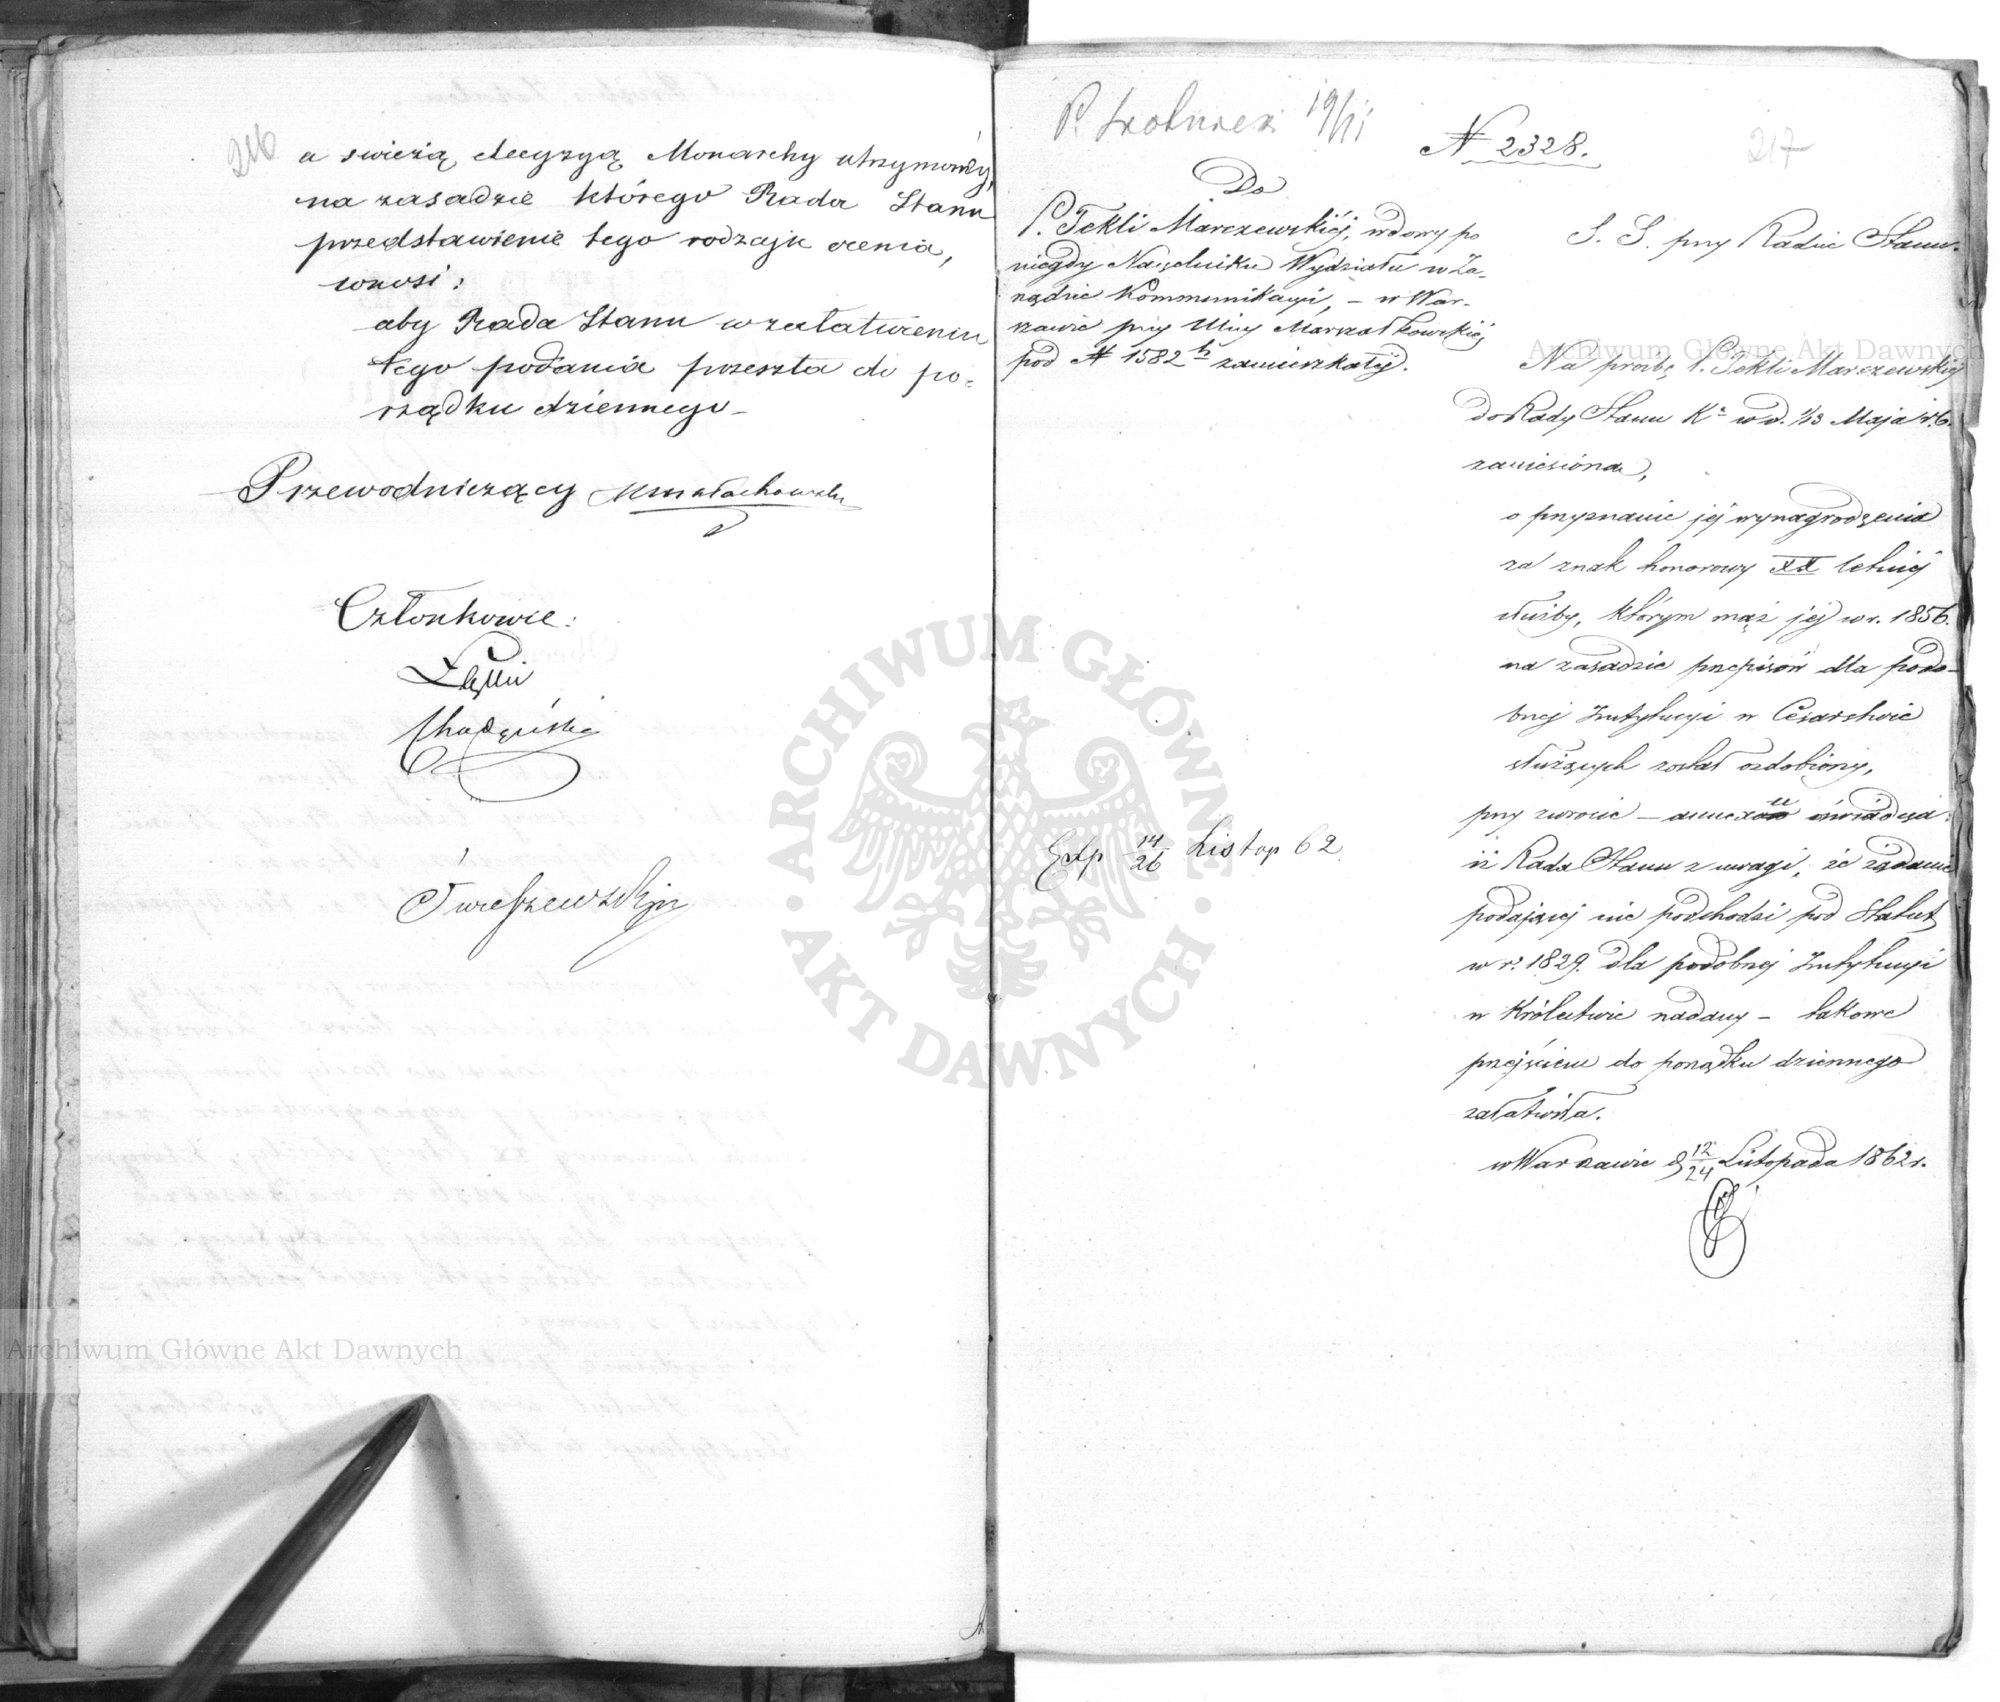 216
a swieżą decyzyą Monarchy utrzymany,
na zasadzie którego Rada Stanu
przedstawienie tego rodzaju ocenia,
wnosi:
aby Rada Stanu w załatwieniu
tego podania przeszła do po-
rządku dziennego –
Przewodniczący Małachowski
Członkowie:
Archiwum Główne Akt Dawnych
ARCHIWUM GŁÓWNE
AKT DAWNYCH
P. 19/11
N 2328.
217
Do
P. Tekli Marczewskiéj, wdowy po
niegdy Naczelniku Wydziału w Za-
rządzie Kommunikacyi, – w War-
szawie przy Ulicy Marszałkowskiéj
pod N 1582 h zamieszkałéj.
Exp 14/26 Listop 62
S. S. przy Radzie Stanu.
Archiwum Główne Akt Dawnych
Na prośbę P. Tekli Marczewskiéj
do Rady Stanu K. w d. 1/13 Maja r. b.
zaniesioną,
o przyznanie jéj wynagrodzenia
za znak honorowy XX letniéj
służby, którym mąż jéj w r. 1856.
na zasadzie przepisów dla podo-
bnéj Instytucyi w Cesarstwie
służących został ozdobiony,
przy zwrocie – oświadcza:
iż Rada Stanu z uwagi, że żądanie
podającéj nie podchodzi pod Statut
w r. 1829. dla podobnéj Instytucyi
w Królestwie nadany – takowe
przejściem do porządku dziennego
załatwiła.
w Warszawie d 12/24 Listopada 1862 r.